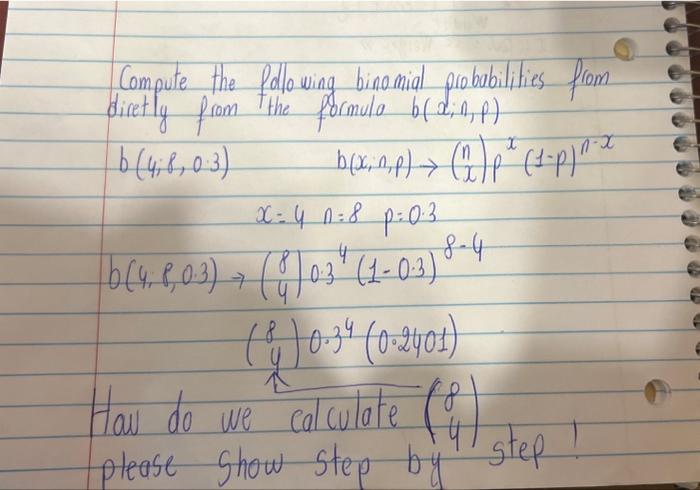 Compute the following binomial probabilities from
diretly from the formula b(x;n,p)
b(4;8,0.3) b(x;n,p) → (n x) p^x (1-p)^n-x
x=4 n=8 p=0.3
b(4;8,0.3) → (8 4) 0.3^4 (1-0.3)^8-4
(8 4) 0.3^4 (0.2401)
How do we calculate (8 4)
please show step by step !